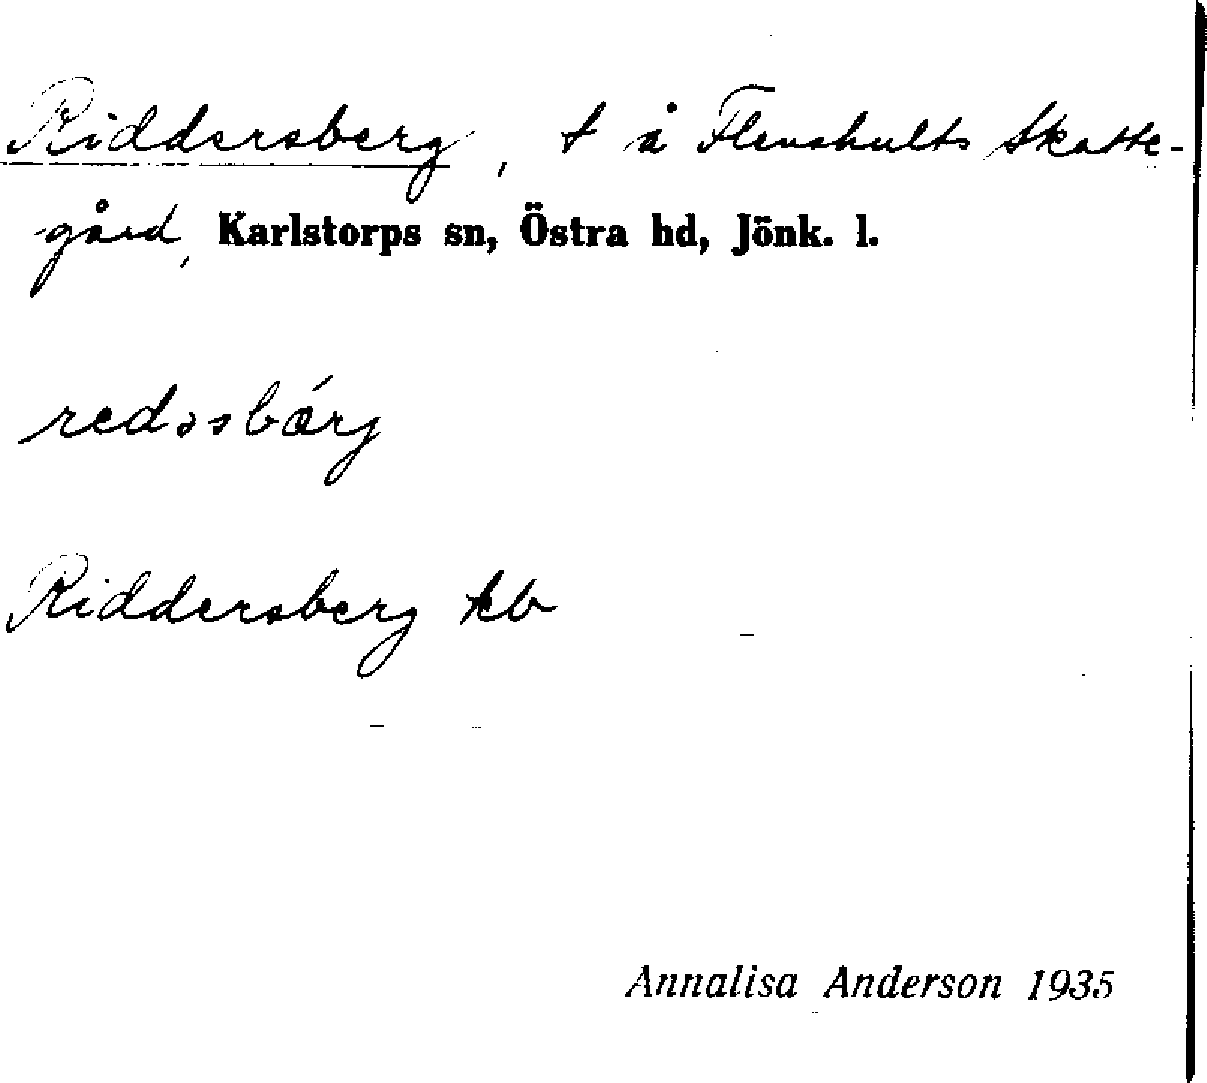 Riddersberg, t å Flenshults Skatte-
gård, Karlstorps sn, Östra hd, Jönk. l.
redəsbärj
Riddersberg kb
Annalisa Anderson 1935